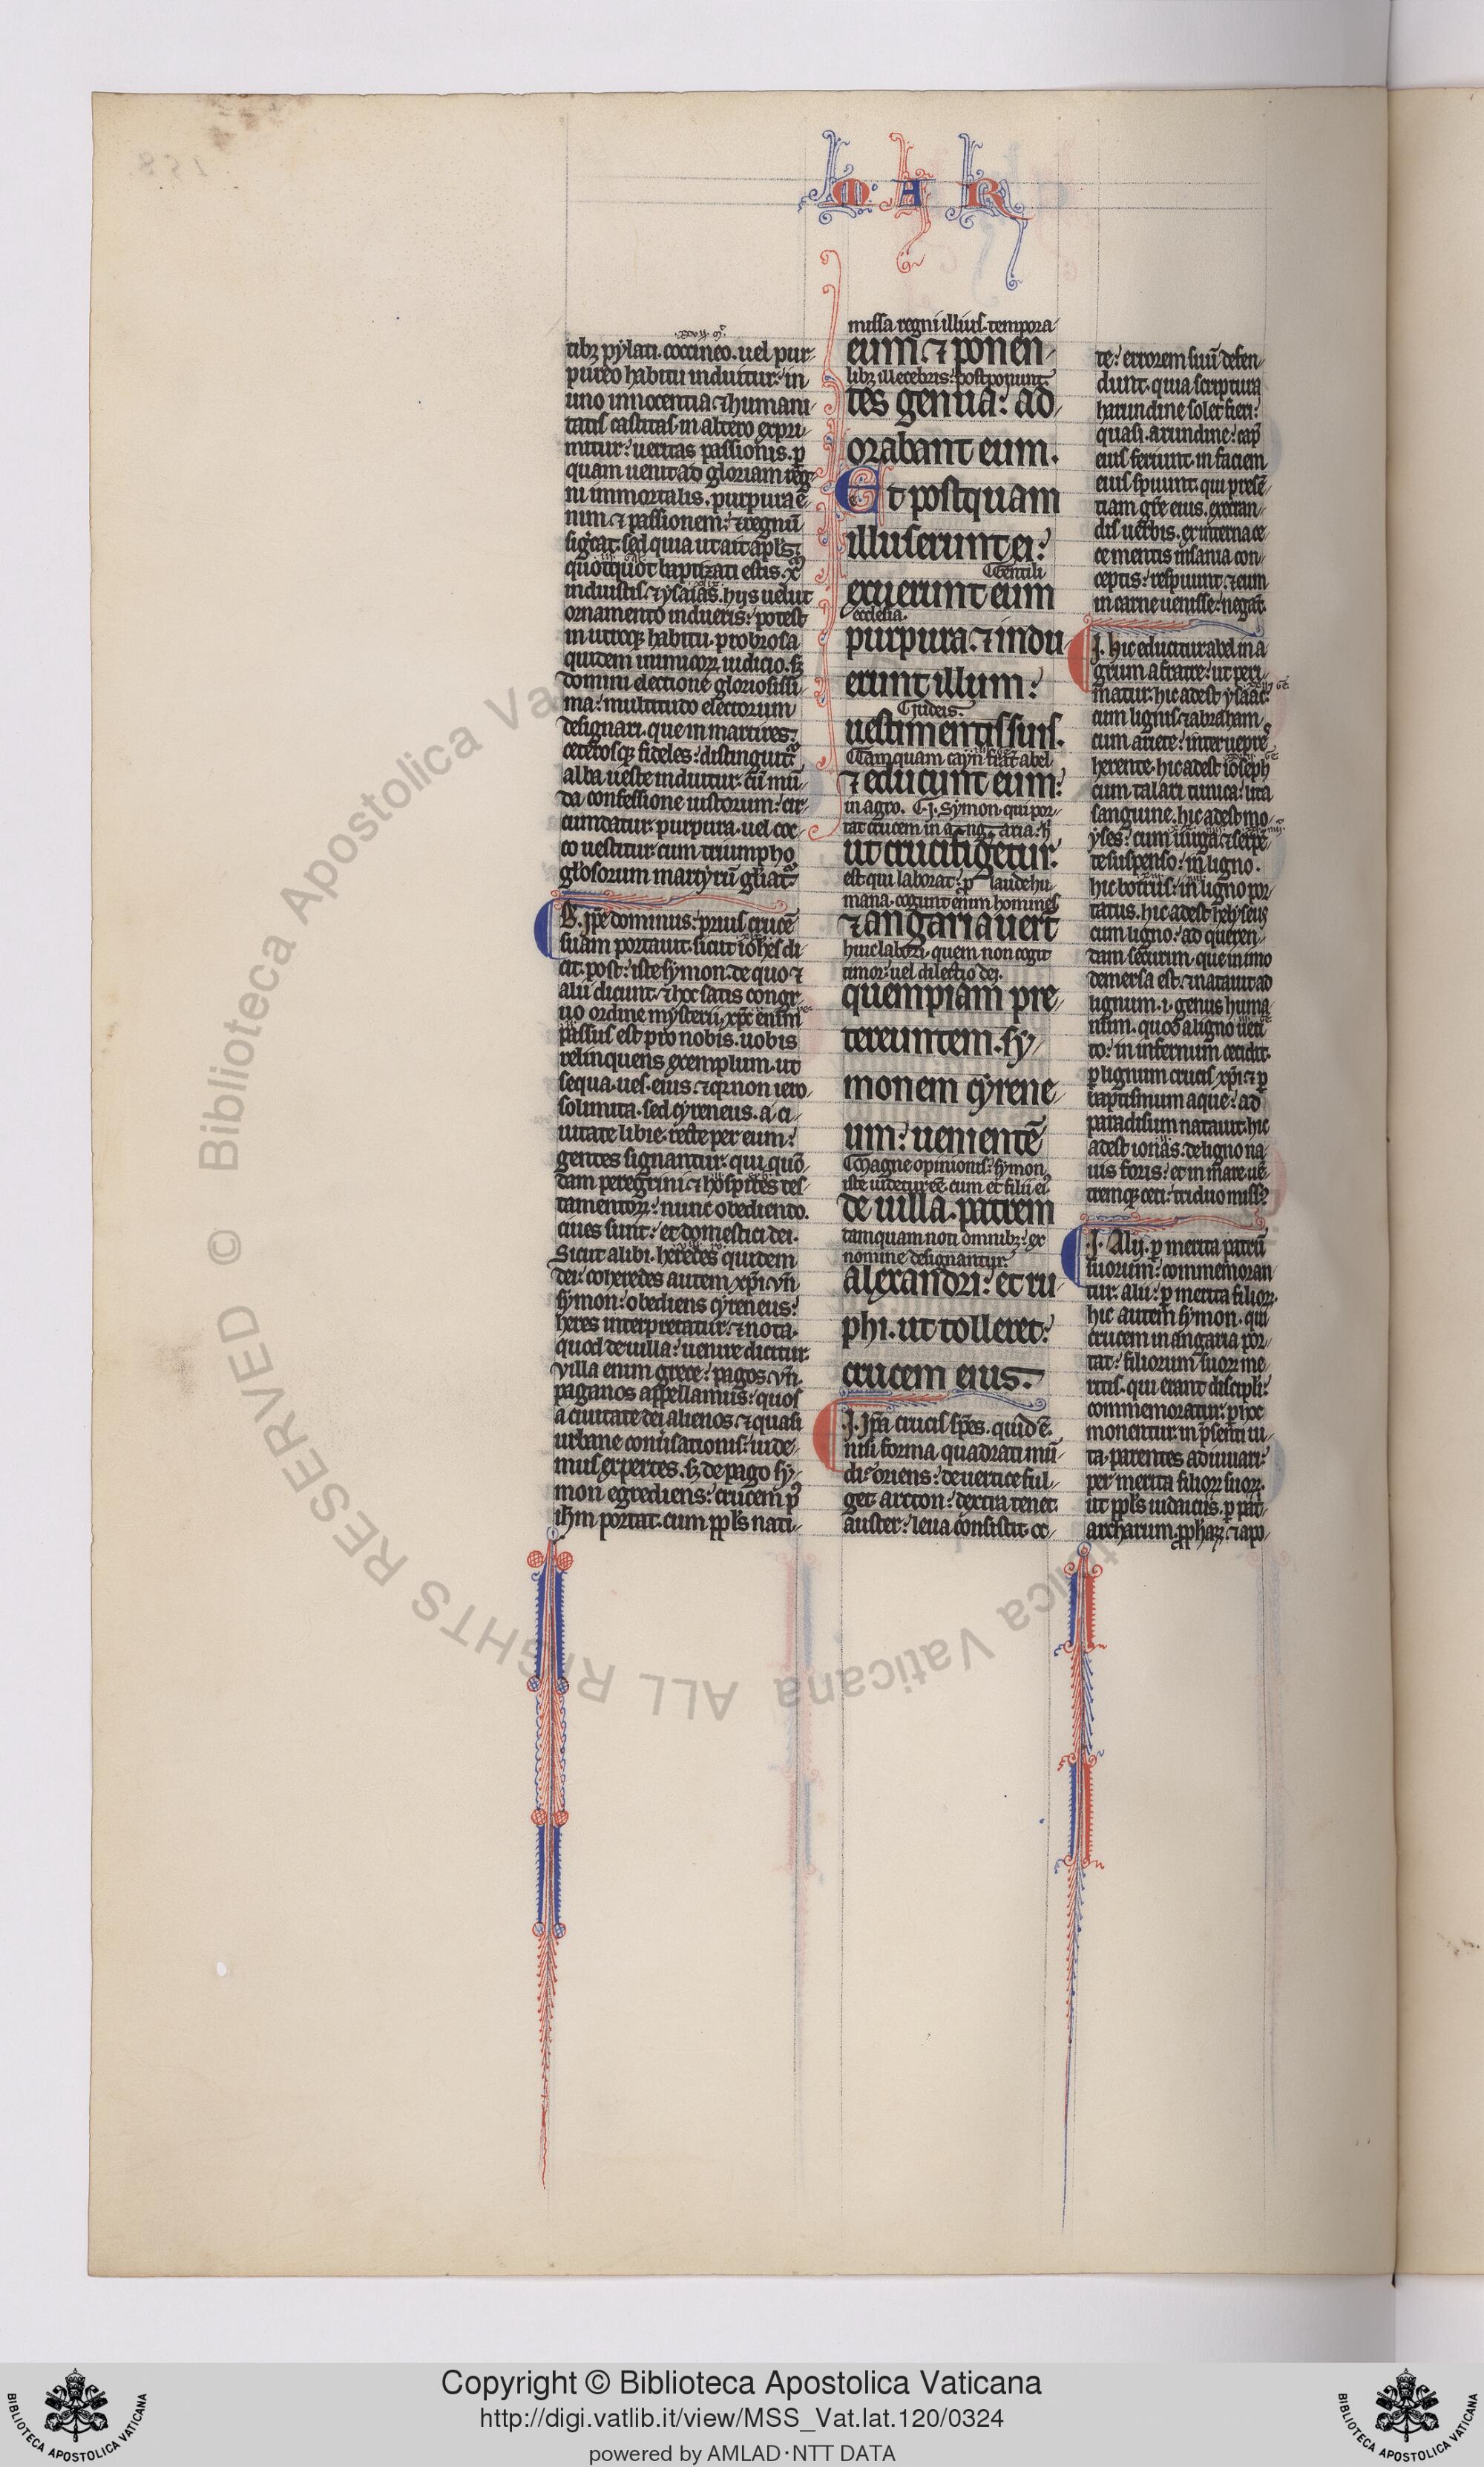 M A R
tibȝ pylati. coccineo. uel pur-
pureo habitu induitur: in
uno innocentia ⁊ humani
tatis castitas. in altero expri-
mitur: ueritas passionis. p̲
quam uenit ad gloriam reg-
ni immortalis. purpura ē-
nim ⁊ passionem: ⁊ regnū
sig̅cat. sed quia ut ait ap̅l's:
quotquot baptizati estis.
induistis. ⁊ ysaias. hiis uelut
ornamento indueris: potest
in utroqȝ habitu. probrosa
quidem inimicoꝝ iudicio. sȝ
domini electione gloriosissi-
ma: multitudo electorum
designari. que in martires:
ceterosqȝ fideles: distinguit᷑
alba ueste induitur. cū mū-
da confessione iustorum: cir-
cumdatur. purpura. uel coc-
co uestitur. cum triumpho
gl'osorum martyrū gl'iat᷑
B. ip̅e dominus: prius crucē
suam portauit. sicut ioh̅es di-
cit. post: iste symon. de quo ⁊
alii dicunt. ⁊ hoc satis congr-
uo ordine mysterii. xp̅c enim
passus est pro nobis. uobis
relinquens exemplum. ut
sequa. ues. eius ⁊ qr̅ non iero-
solimita. sed cyreneus. a ci-
uitate libie. recte per eum:
gentes signantur. qui quō-
dam peregrini ⁊ hospites tes-
tamentoꝝ: nunc obediendo.
ciues sunt: et domestici dei.
Sicut alibi. heredes quidem
dei: coheredes autem xp̅i. vn̅
symon: obediens cyreneus:
heres interpretatur. ⁊ nota.
quod de uilla: uenire dicitur.
villa enim grece: pagos. vn̅.
paganos appellamus: quos
a ciuitate dei alienos. ⁊ quasi
urbane conu̅sationis: uide-
mus expertes. sȝ de pago sy-
mon egrediens: crucem p᷒
ih̅m portat. cum pp̅l's nati-
missa regni illius. tempora
eum. ⁊ ponen-
libȝ illecebris: postponunt.
tes genua: ad-
orabant eum.
Et postquam
illuserunt ei:
Gentili
exuerunt eum
ecclesia.
purpura. ⁊ indu-
erunt illum:
iudeis.
uestimentis suis.
Tamquam cayn frat̅ abel
⁊ educunt eum:
in agro. J. Symon. qui por-
tat crucem in angaria. h̅
ut crucifigerent.
est qui laborat: p̲ laude hu-
mana. cogunt enim homines
⁊ angariauer̅t
huic labori. quem non cogit
timor. uel dilectio dei.
quempiam pre-
tereuntem. sy-
monem cyrene-
um: uenientē
Magne opinionis: symon
iste uidetur eē. cum et filii ei᷒
de uilla. patrem
tamquam noti omnibȝ: ex
nomine designantur.
alexandri: et ru-
phi. ut tolleret:
crucem eius.
J. Ip̅a crucis sp̅es. quid ē.
nisi forma quadrati mū-
di: oriens: de uertice ful-
get. arcton: dextra tenet.
auster: leua consistit. oc-
te: errorem suū defen-
dunt. quia scriptura
harundine solet fieri:
quasi. arundine: cap̅
eius feriunt. in faciem
eius spuunt. qui presē-
tiam gr̅e eius. execran-
dis uerbis. ex interna ce-
ce mentis insania con-
ceptis: respuunt. ⁊ eum
in carne uenisse: negāt.
J. hic educitur abel. in a
grum a fratre: ut peri-
matur. hic adest ysaac.
cum lignis. ⁊ abraham
cum ariete: inter uepres
herente. hic adest ioseph
cum talari tunica: uita
sanguine. hic adest mo-
yses: cum uirga. ⁊ serpē-
te suspenso: in ligno.
hic botrus: in ligno por-
tatus. hic adest helyseus
cum ligno: ad queren-
dam securim. que in imo
demersa est. ⁊ natauit ad
lignum. i. genus huma-
num. quod a ligno ueti-
to: in infernum cecidit.
p̲ lignum crucis xp̅i. ⁊ p̲
baptismum aque: ad
paradisum natauit. hic
adest ionas. de ligno na-
uis foris: et in mare. uē-
tremqȝ ceti: triduo miss᷒
J. Alij. p̲ merita patrū
suorum: commemoran-
tur. alii: p̲ merita filioꝝ.
hic autem symon. qui
crucem in angaria por-
tat: filiorum suoꝝ me-
ritis. qui erant discip̅li:
commemoratur. p̲ hoc
monentur. in p̅senti ui-
ta. parentes adiuuari:
per merita filioꝝ suoꝝ.
ut pp̅l's iudaicus. p̲ pat̅-
archarum. pp̅haꝝ. ⁊ apo-
© Biblioteca Apostolica Vaticana ALL RIGHTS RESERVED
Copyright © Biblioteca Apostolica Vaticana
http://digi.vatlib.it/view/MSS_Vat.lat.120/0324
powered by AMLAD·NTT DATA
BIBLIOTECA APOSTOLICA VATICANA
BIBLIOTECA APOSTOLICA VATICANA